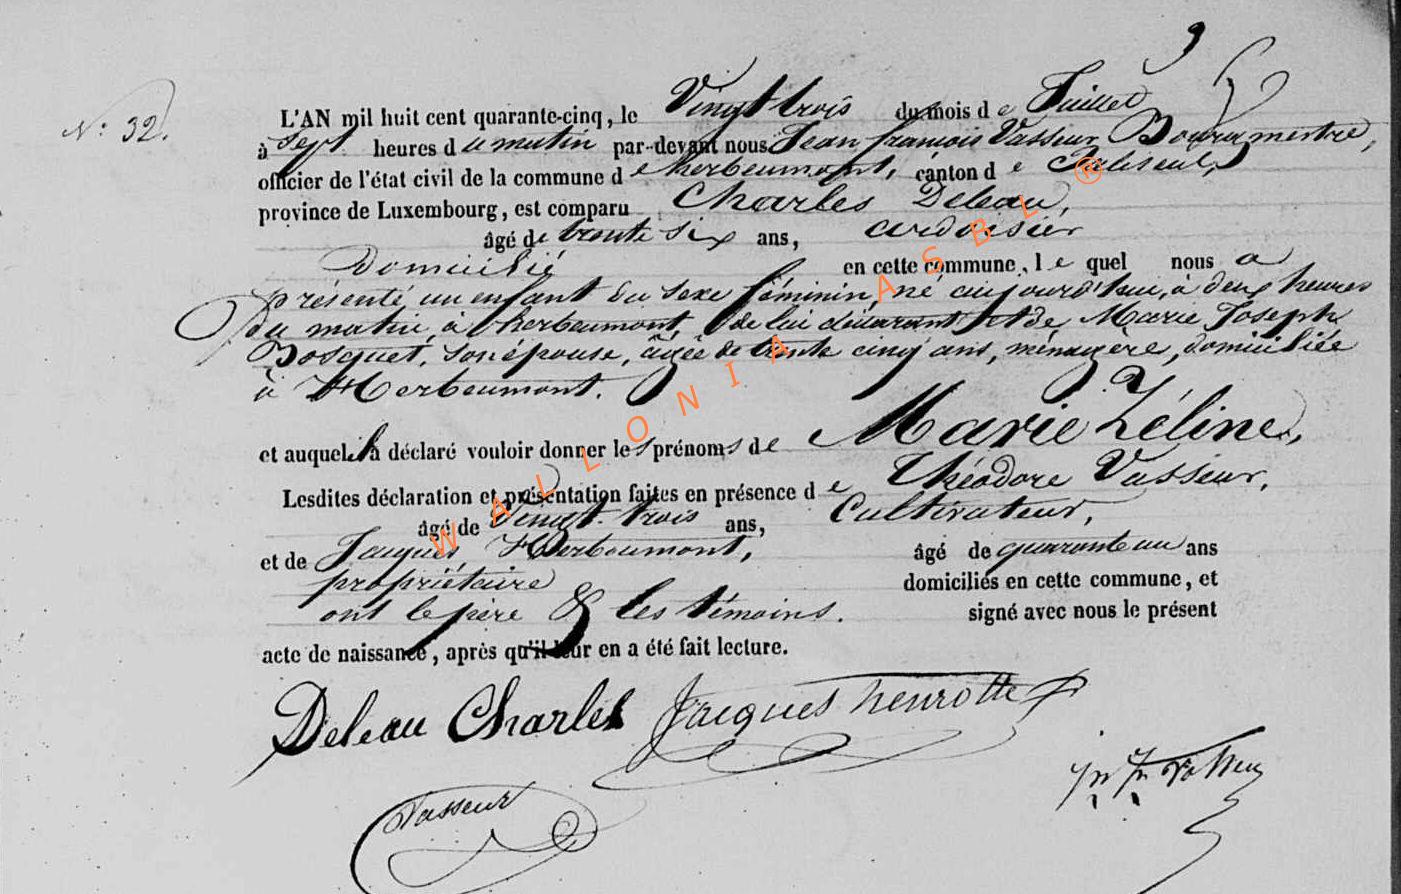 N.° 32.
L'AN mil huit cent quarante-cinq, le Vingt trois du mois de Juillet
à Sept heures du matin par-devant nous Jean françois Vasseur Bourgmestre,
officier de l'état civil de la commune de herbeumont, canton de Paliseul,
province de Luxembourg, est comparu Charles Deleau,
âgé de trente six ans, ardoisier
domicilié en cette commune, lequel nous a
présenté un enfant du sexe féminin, né aujourd'hui, à deux heures
du matin à herbeumont, de lui déclarant et de Marie Joseph
Bosquet, son épouse, âgée de trente cinq ans, ménagère, domiciliée
à Herbeumont.
et auquel il a déclaré vouloir donner les prénoms de Marie Zéline,
Lesdites déclaration et présentation faites en présence de Théodore Vasseur,
âgé de Vingt-trois ans, Cultivateur,
et de Jacques Herbeumont, âgé de quarante un ans
propriétaire domiciliés en cette commune, et
ont le père & les témoins. signé avec nous le présent
acte de naissance, après qu'il leur en a été fait lecture.
Deleau Charles Jacques henrotte
Vasseur
WALLONIA ASBL ®